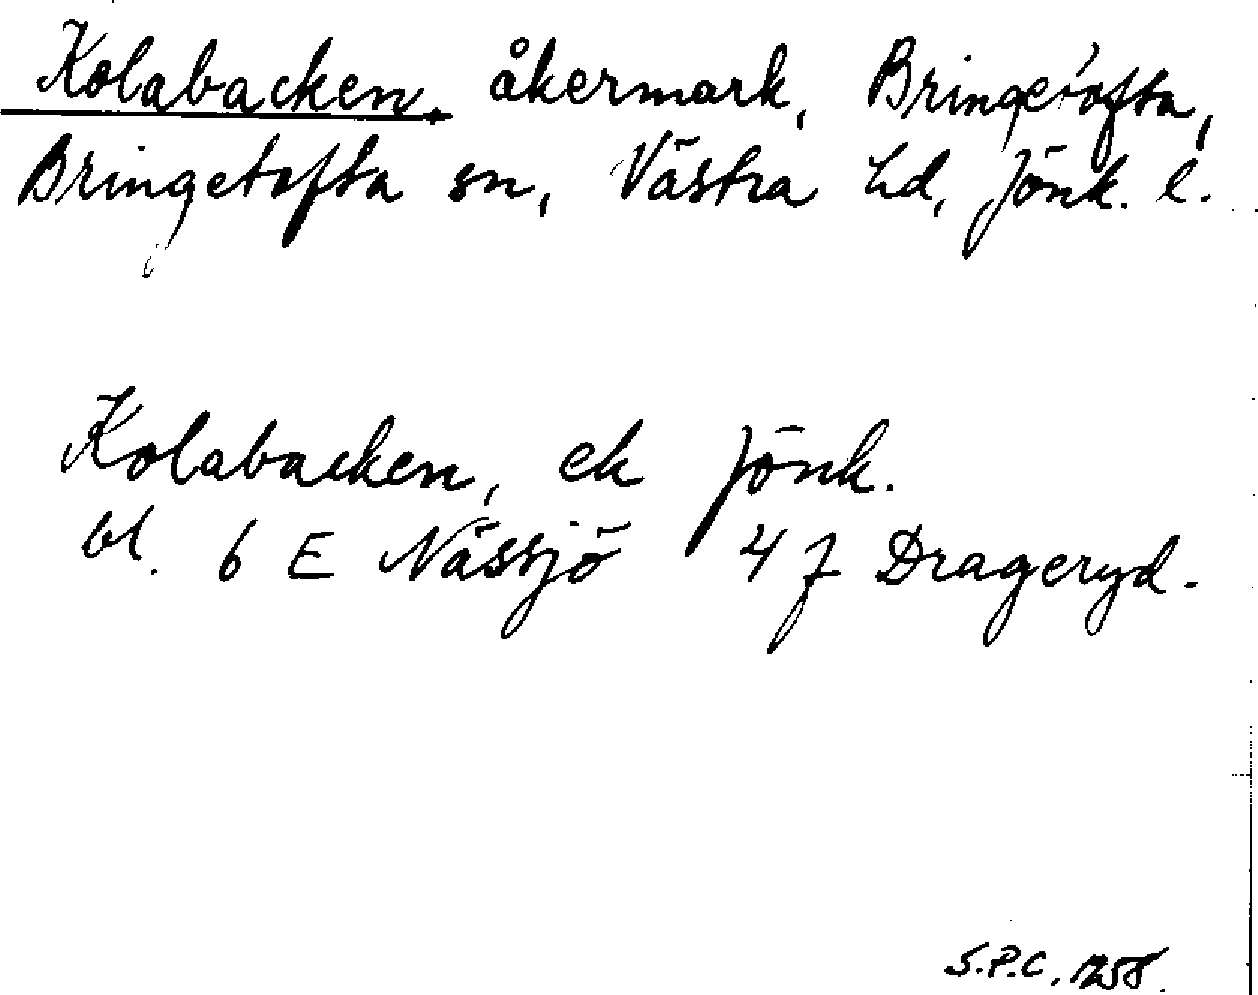 Kolabacken, åkermark, Bringetofta,
Bringetofta sn, Västra hd, Jönk. l.
Kolabacken, ek Jönk.
bl. 6 E Nässjö 4 f Drageryd.
S.P.C. 1258.